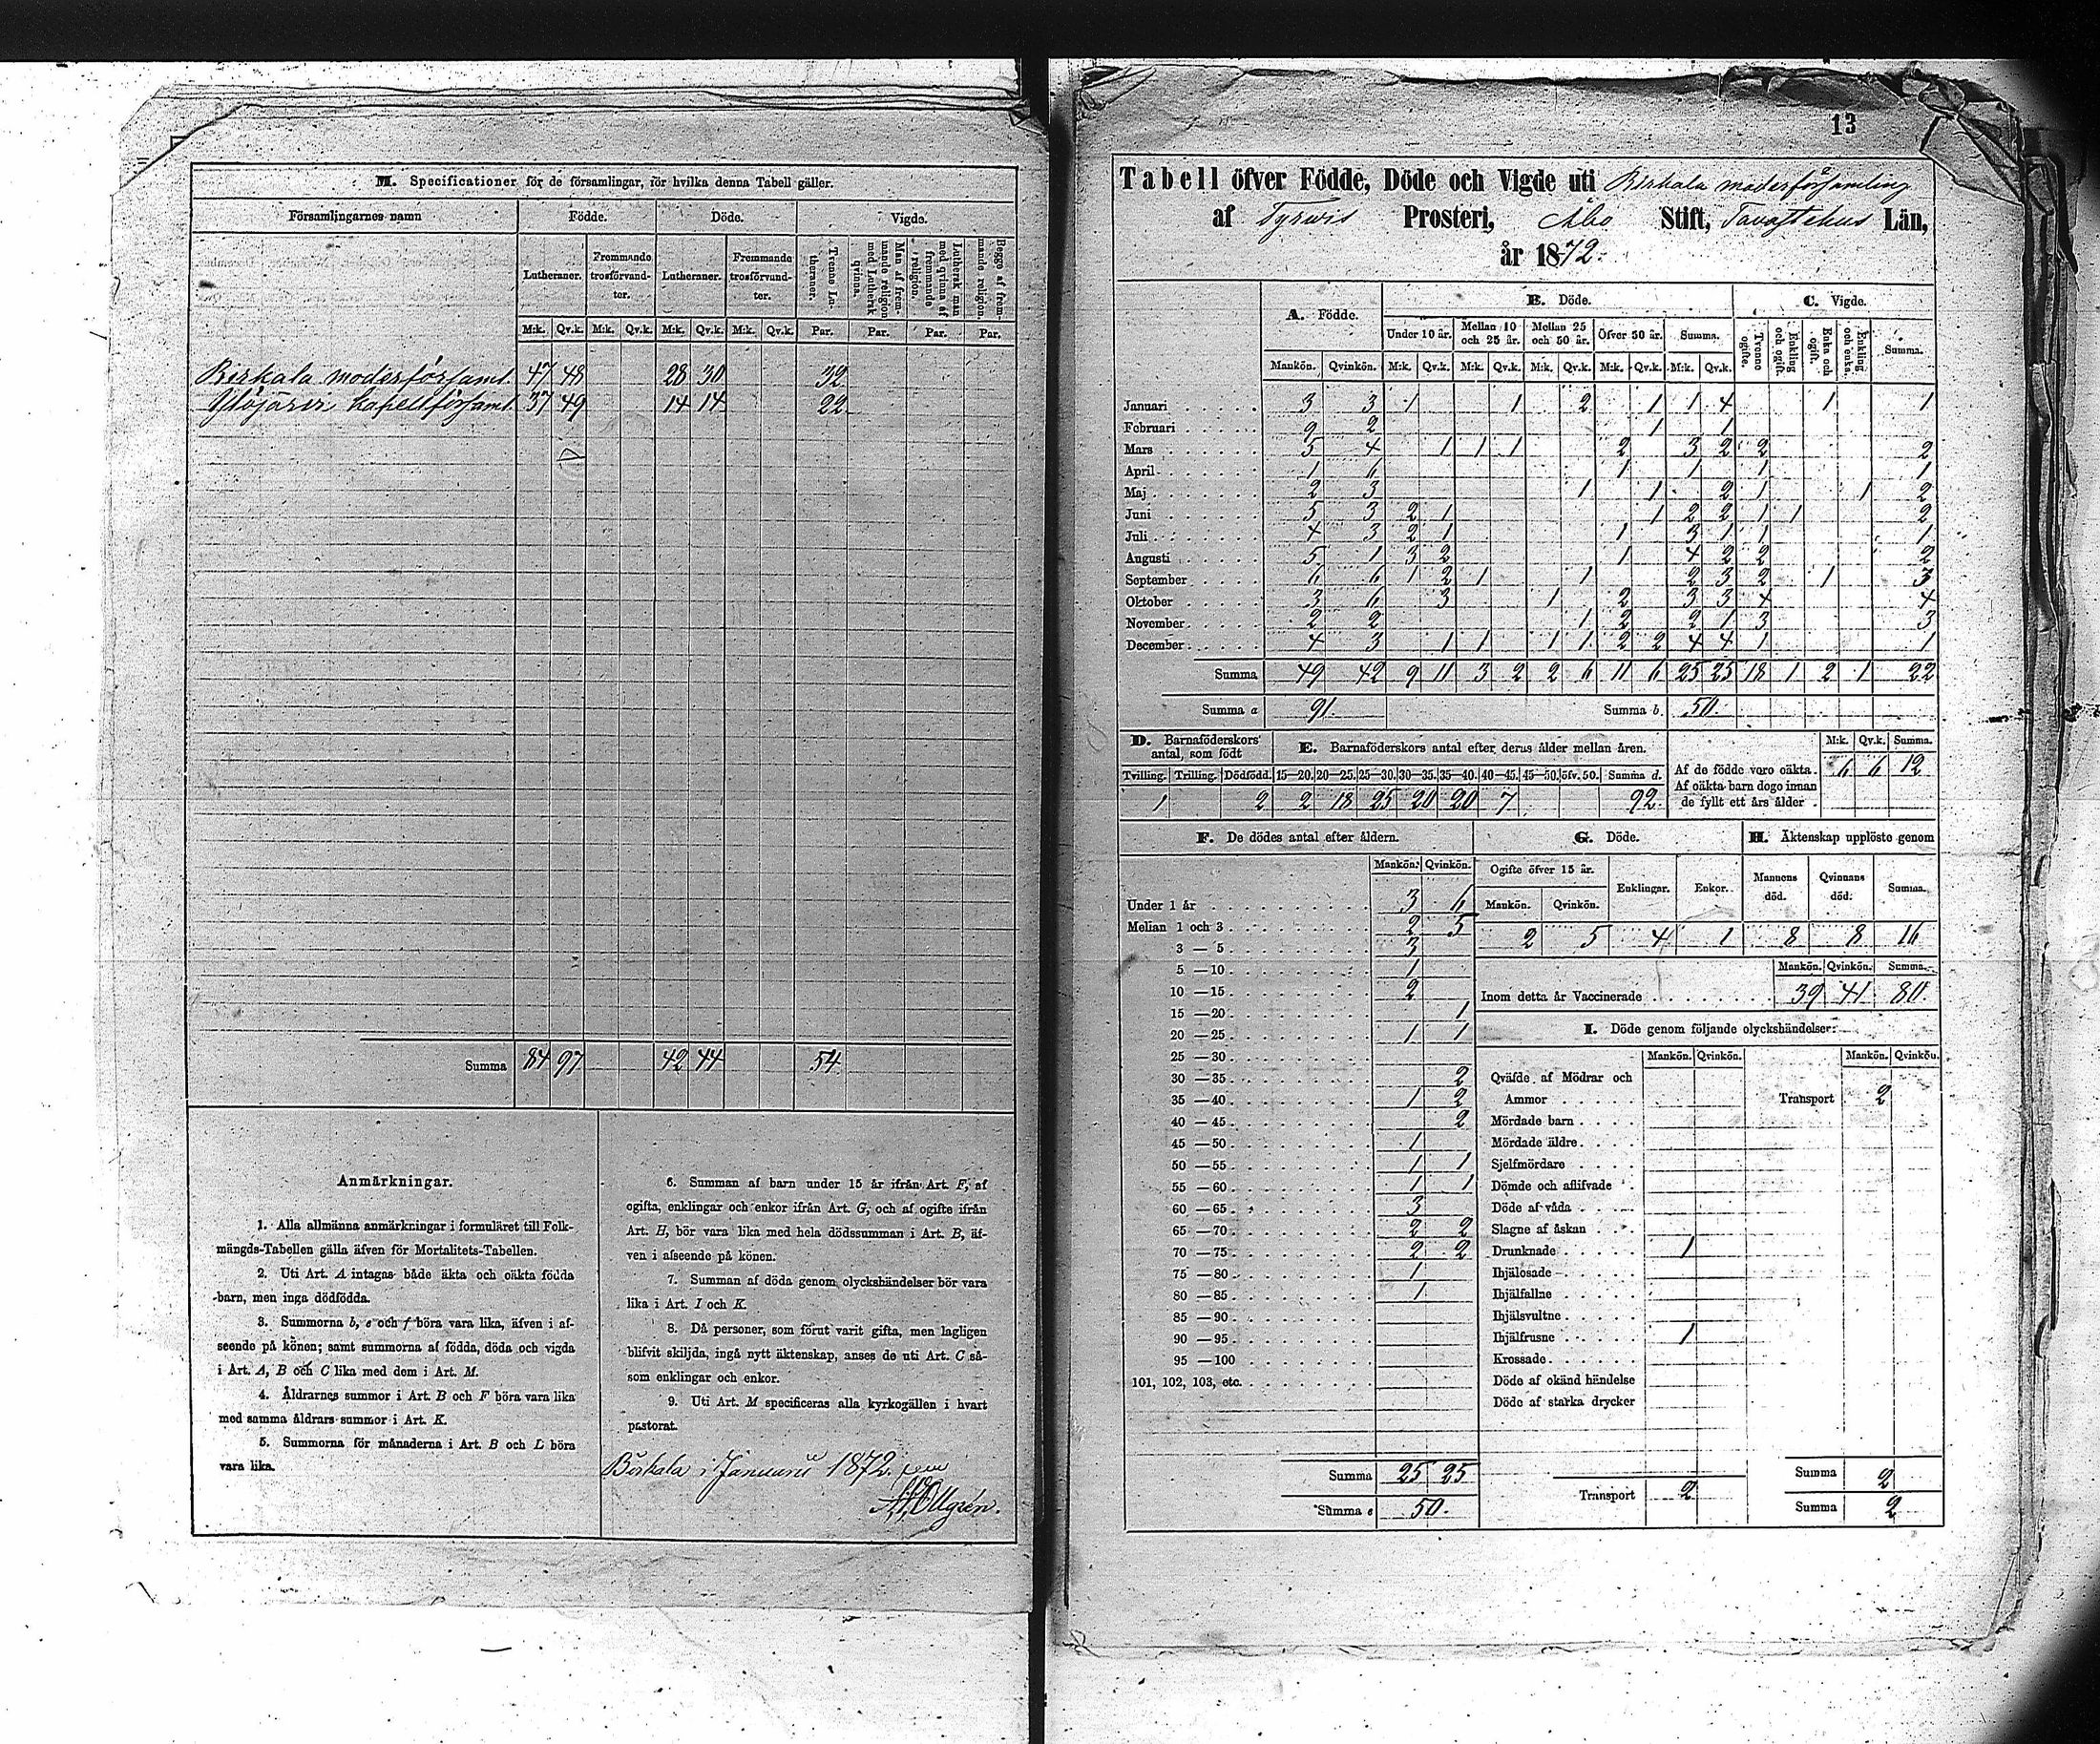 M. Specificationer för de församlingar, för hvilka denna Tabell gäller.
Församlingarnes namn Födde. Döde. Vigde.
Lutheraner. Fremmande trosförvandter. Lutheraner. Fremmande trosförvandter. Trenne Lutheraner. Man af fremmande religion med Luthersk qvinna. Luthersk man med qvinna af fremmande religion. Begge af fremmande religion.
M:k. Qv.k. M:k. Qv.k. M:k. Qv.k. M:k. Qv.k. Par. Par. Par. Par.
Birkala moderförsaml. 47 48 28 30 32
Ylöjärvi kapellförsaml. 37 49 14 14 22
Summa 84 97 42 44 54
Anmärkningar.
1. Alla allmänna anmärkningar i formuläret till Folk-
mängds-Tabellen gälla äfven för Mortalitets-Tabellen.
2. Uti Art. A intagas både äkta och oäkta födda
barn, men inga dödfödda.
3. Summorna b, e och f böra vara lika, äfven i af-
seende på könen; samt summorna af födda, döda och vigda
i Art. A, B och C lika med dem i Art. M.
4. Åldrarnes summor i Art. B och F böra vara lika
med samma åldrars summor i Art. K.
5. Summorna för månaderna i Art. B och L böra
vara lika.
6. Summan af barn under 15 år ifrån Art. F, af
ogifta, enklingar och enkor ifrån Art. G, och af ogifte ifrån
Art. H, bör vara lika med hela dödssumman i Art. B, äf-
ven i afseende på könen.
7. Summan af döda genom olyckshändelser bör vara
lika i Art. I och K.
8. Då personer, som förut varit gifta, men lagligen
blifvit skiljda, ingå nytt äktenskap, anses de uti Art. C så-
som enklingar och enkor.
9. Uti Art. M specificeras alla kyrkogällen i hvart
pastorat.
Birkala i Januarii 1872.
13
Tabell öfver Födde, Döde och Vigde uti Birkala moderförsamling
af Tyrvis Prosteri, Åbo Stift, Tavastehus Län,
år 1872.
A. Födde. B. Döde. C. Vigde.
Under 10 år. Mellan 10 och 25 år. Mellan 25 och 50 år. Öfver 50 år. Summa. Trenne ogifte. Enkling och ogift. Enka och ogift. Enkling och enka. Summa.
Mankön. Qvinkön. M:k. Qv.k. M:k. Qv.k. M:k. Qv.k. M:k. Qv.k. M:k. Qv.k.
Januari 3 3 1 1 2 1 1 4 1 1
Februari 9 2 1 1
Mars 5 4 1 1 1 2 3 2 2 2
April 1 6 1 1 1 1
Maj 2 3 1 1 2 1 1 2
Juni 5 3 2 1 1 2 2 1 1 2
Juli 4 3 2 1 1 3 1 1 1
Augusti 5 1 3 2 1 4 2 2 2
September 6 6 1 2 1 1 2 3 2 1 3
Oktober 3 6 3 1 2 3 3 4 4
November 2 2 1 2 2 1 3 3
December 4 3 1 1 1 1 2 2 4 4 1 1
Summa 49 42 9 11 3 2 2 6 11 6 25 25 18 1 2 1 22
Summa a 91 Summa b. 50.
D. Barnaföderskors antal, som födt
E. Barnaföderskors antal efter deras ålder mellan åren.
M:k. Qv.k. Summa.
Tvilling. Trilling. Dödfödd. 15—20. 20—25. 25—30. 30—35. 35—40. 40—45. 45—50. öfv. 50. Summa d.
1 2 2 18 25 20 20 7 92.
Af de födde voro oäkta. 6 6 12
Af oäkta barn dogo innan
de fyllt ett års ålder
F. De dödes antal efter åldern.
Mankön. Qvinkön.
Under 1 år 3 6
Mellan 1 och 3 2 5
3 — 5 3
5 — 10 1
10 — 15 2
15 — 20 1
20 — 25 1 1
25 — 30
30 — 35 2
35 — 40 1 2
40 — 45 2
45 — 50 1
50 — 55 1 1
55 — 60 1 1
60 — 65 3
65 — 70 2 2
70 — 75 2 2
75 — 80 1
80 — 85 1
85 — 90
90 — 95
95 — 100
101, 102, 103, etc.
Summa 25 25
Summa e 50.
G. Döde.
Ogifte öfver 15 år. Enklingar. Enkor.
Mankön. Qvinkön.
2 5 4 1
H. Äktenskap upplöste genom
Mannens död. Qvinnans död. Summa.
8 8 16
Mankön. Qvinkön. Summa.
Inom detta år Vaccinerade 39 41 80.
I. Döde genom följande olyckshändelser:
Mankön. Qvinkön. Mankön. Qvinkön.
Qväfde af Mödrar och
Ammor Transport 2
Mördade barn
Mördade äldre
Sjelfmördare
Dömde och aflifvade
Döde af våda
Slagne af åskan
Drunknade 1
Ihjälosade
Ihjälfallne
Ihjälsvultne
Ihjälfrusne 1
Krossade
Döde af okänd händelse
Döde af starka drycker
Transport 2
Summa 2
Summa 2